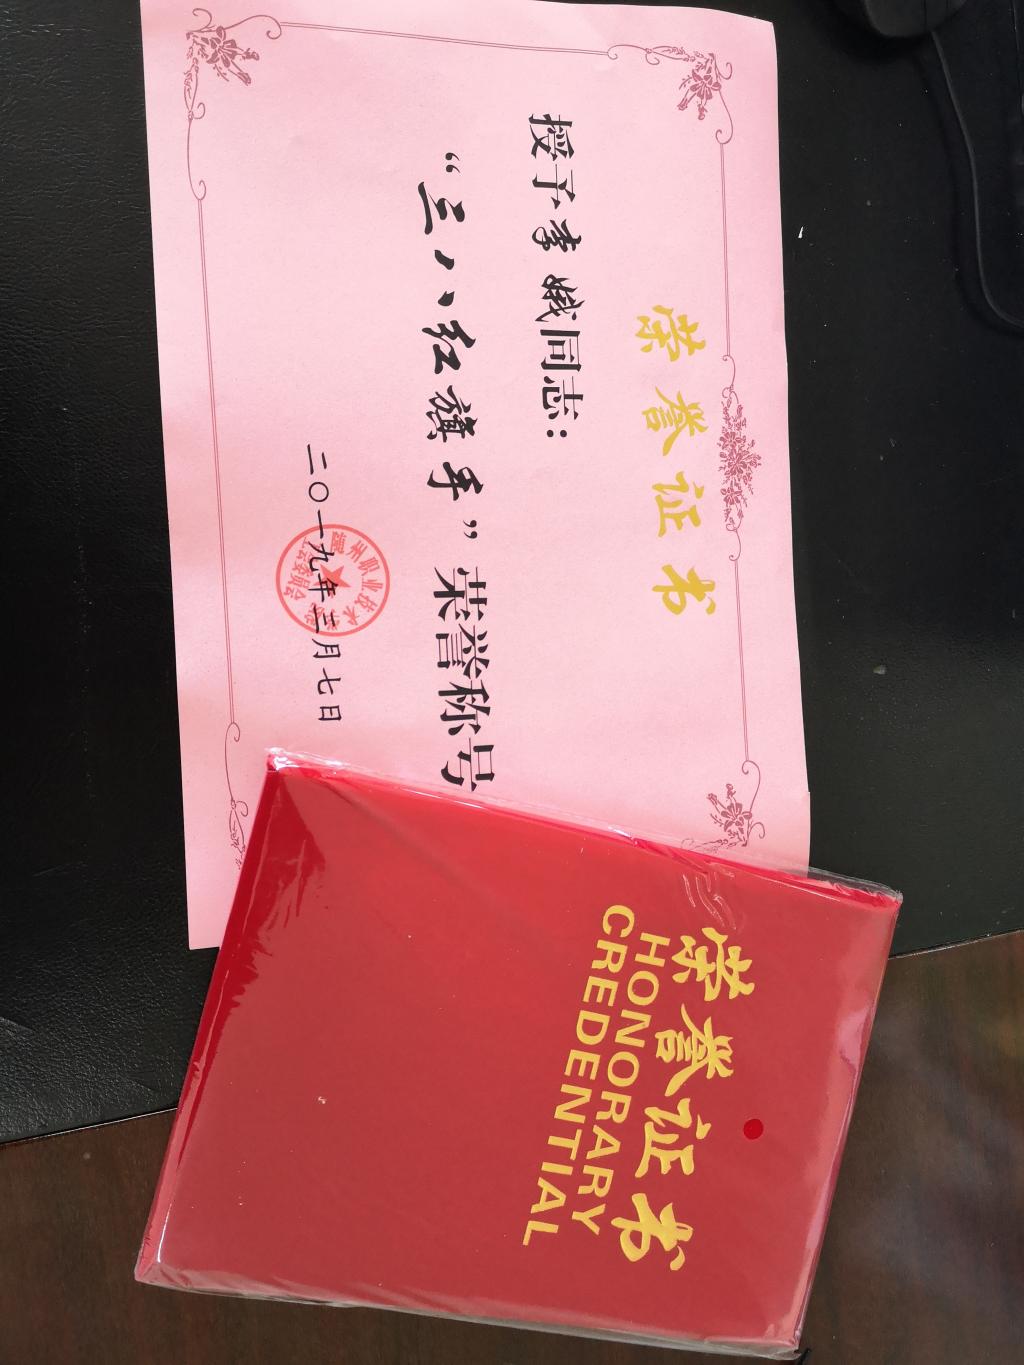 荣誉证书
授予李娥同志：
“三八红旗手”荣誉称号
二〇一九年三月七日
州职业技术
委员会
荣誉证书
HONORARY
CREDENTIAL